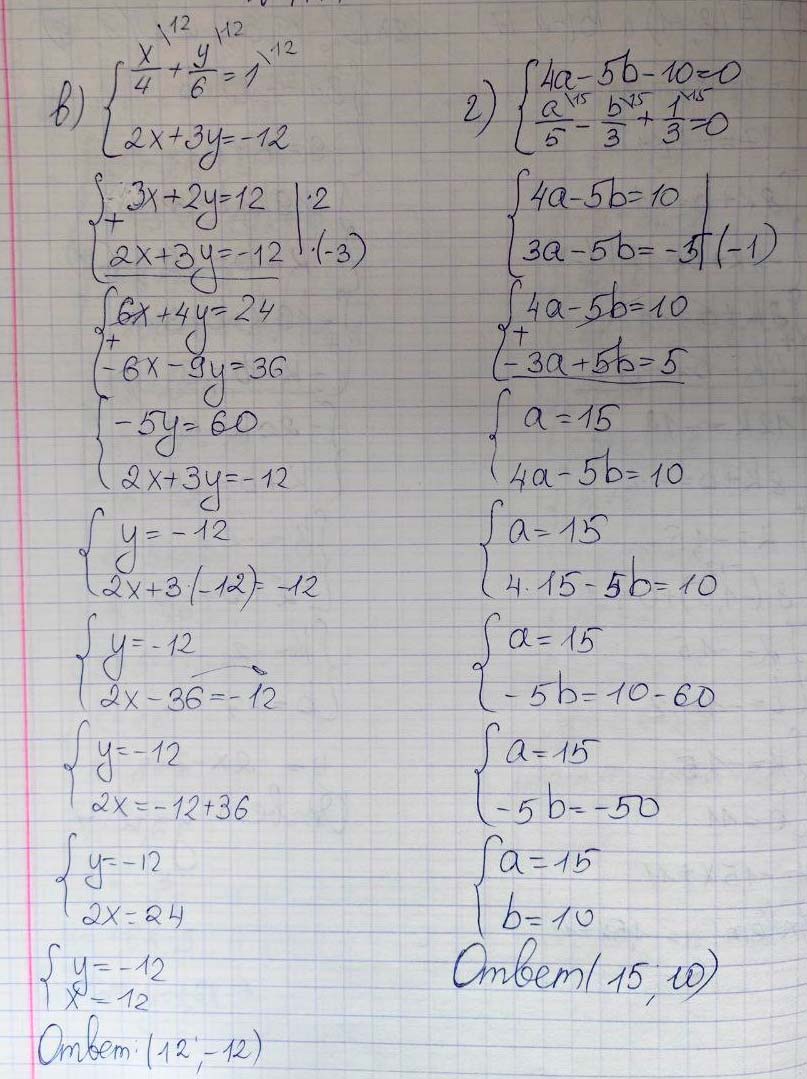 в) { x/4 \12 + y/6 \12 = 1 \12
2x+3y=-12
{ 3x+2y=12 | ·2
+
2x+3y=-12 | ·(-3)
{ 6x+4y=24
+
-6x-9y=36
{ -5y=60
2x+3y=-12
{ y=-12
2x+3·(-12)=-12
{ y=-12
2x-36=-12
{ y=-12
2x=-12+36
{ y=-12
2x=24
{ y=-12
x=12
Ответ: (12; -12)
г) { 4a-5b-10=0
a/5 \15 - b/3 \15 + 1/3 \15 = 0
{ 4a-5b=10 |
3a-5b=-5 | (-1)
{ 4a-5b=10
+
-3a+5b=5
{ a=15
4a-5b=10
{ a=15
4·15-5b=10
{ a=15
-5b=10-60
{ a=15
-5b=-50
{ a=15
b=10
Ответ (15; 10)